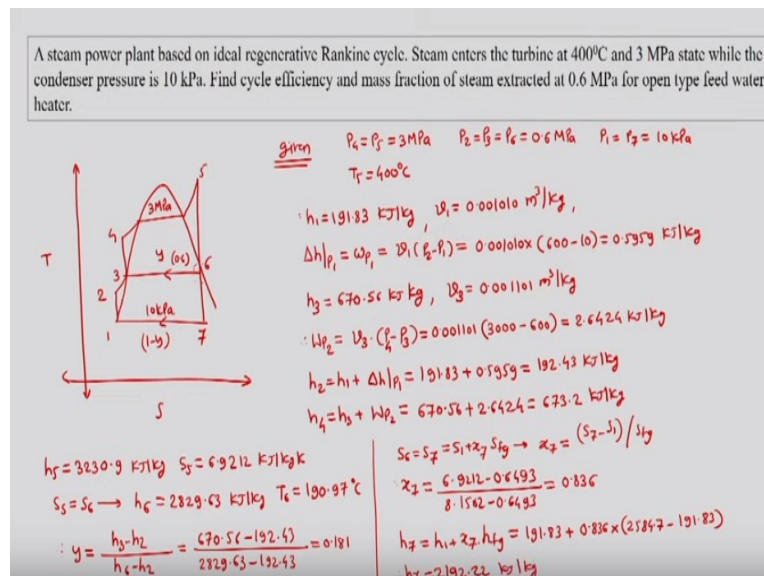 A steam power plant based on ideal regenerative Rankine cycle. Steam enters the turbine at 400⁰C and 3 MPa state while the
condenser pressure is 10 kPa. Find cycle efficiency and mass fraction of steam extracted at 0.6 MPa for open type feed water
heater.
given P₄=P₅=3MPa P₂=P₃=P₆=0.6 MPa P₁=P₇=10kPa
T₅=400°C
T
S
1
2
3
4
5
6
7
3MPa
y (0.6)
10kPa
(1-y)
h₁=191.83 kJ/kg, v₁=0.001010 m³/kg,
Δh|P₁=wP₁=v₁(P₂-P₁)=0.001010x(600-10)=0.5959 kJ/kg
h₃=670.56 kJ/kg, v₃=0.001101 m³/kg
∴WP₂=v₃.(P₄-P₃)=0.001101(3000-600)=2.6424 kJ/kg
h₂=h₁+Δh|P₁=191.83+0.5959=192.43 kJ/kg
h₄=h₃+WP₂=670.56+2.6424=673.2 kJ/kg
h₅=3230.9 kJ/kg S₅=6.9212 kJ/kgK
S₅=S₆→h₆=2829.63 kJ/kg T₆=190.97°C
∴y=(h₃-h₂)/(h₆-h₂)=(670.56-192.43)/(2829.63-192.43)=0.181
S₆=S₇=S₁+x₇Sfg→x₇=(S₇-S₁)/Sfg
x₇=(6.9212-0.6493)/(8.1502-0.6493)=0.836
h₇=h₁+x₇.hfg=191.83+0.836x(2584.7-191.83)
h₇=2192.22 kJ/kg